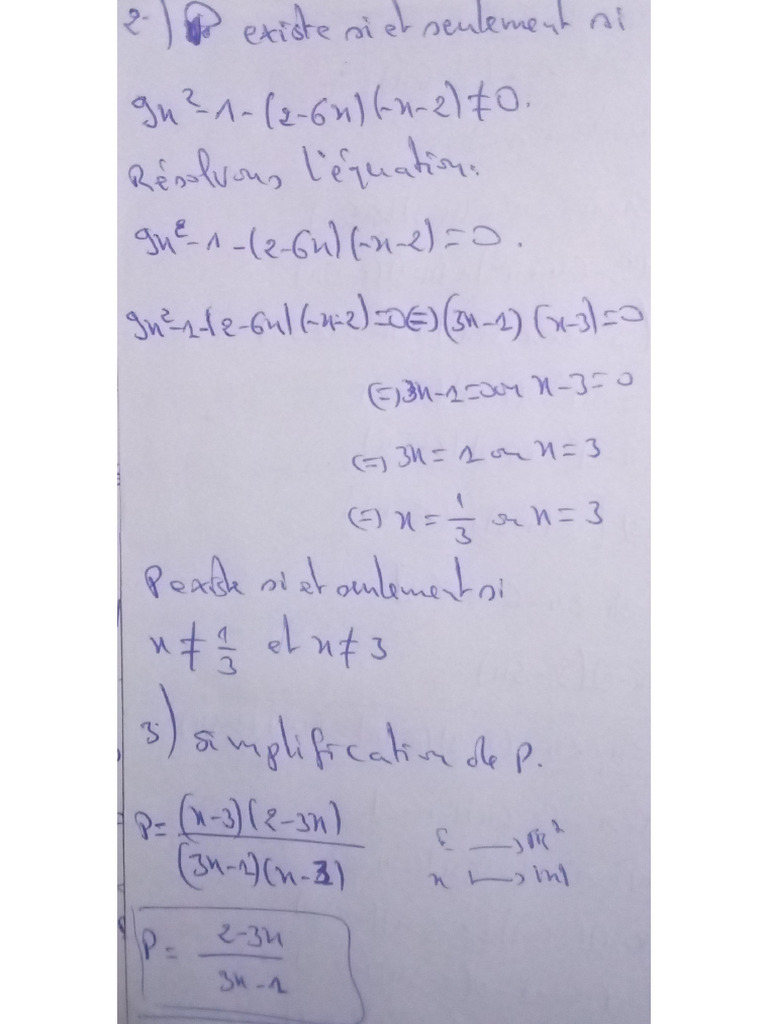 2-) P existe si et seulement si
9x²-1-(2-6x)(-x-2)≠0.
Résolvons l'équation:
9x²-1-(2-6x)(-x-2)=0.
9x²-1-(2-6x)(-x-2)=0⇔(3x-1)(x-3)=0
⇔3x-1=0 ou x-3=0
⇔3x=1 ou x=3
⇔x=1/3 ou x=3
P existe si et seulement si
x≠1/3 et x≠3
3) simplification de P.
P=(x-3)(2-3x)/(3x-1)(x-3)
P=2-3x/3x-1